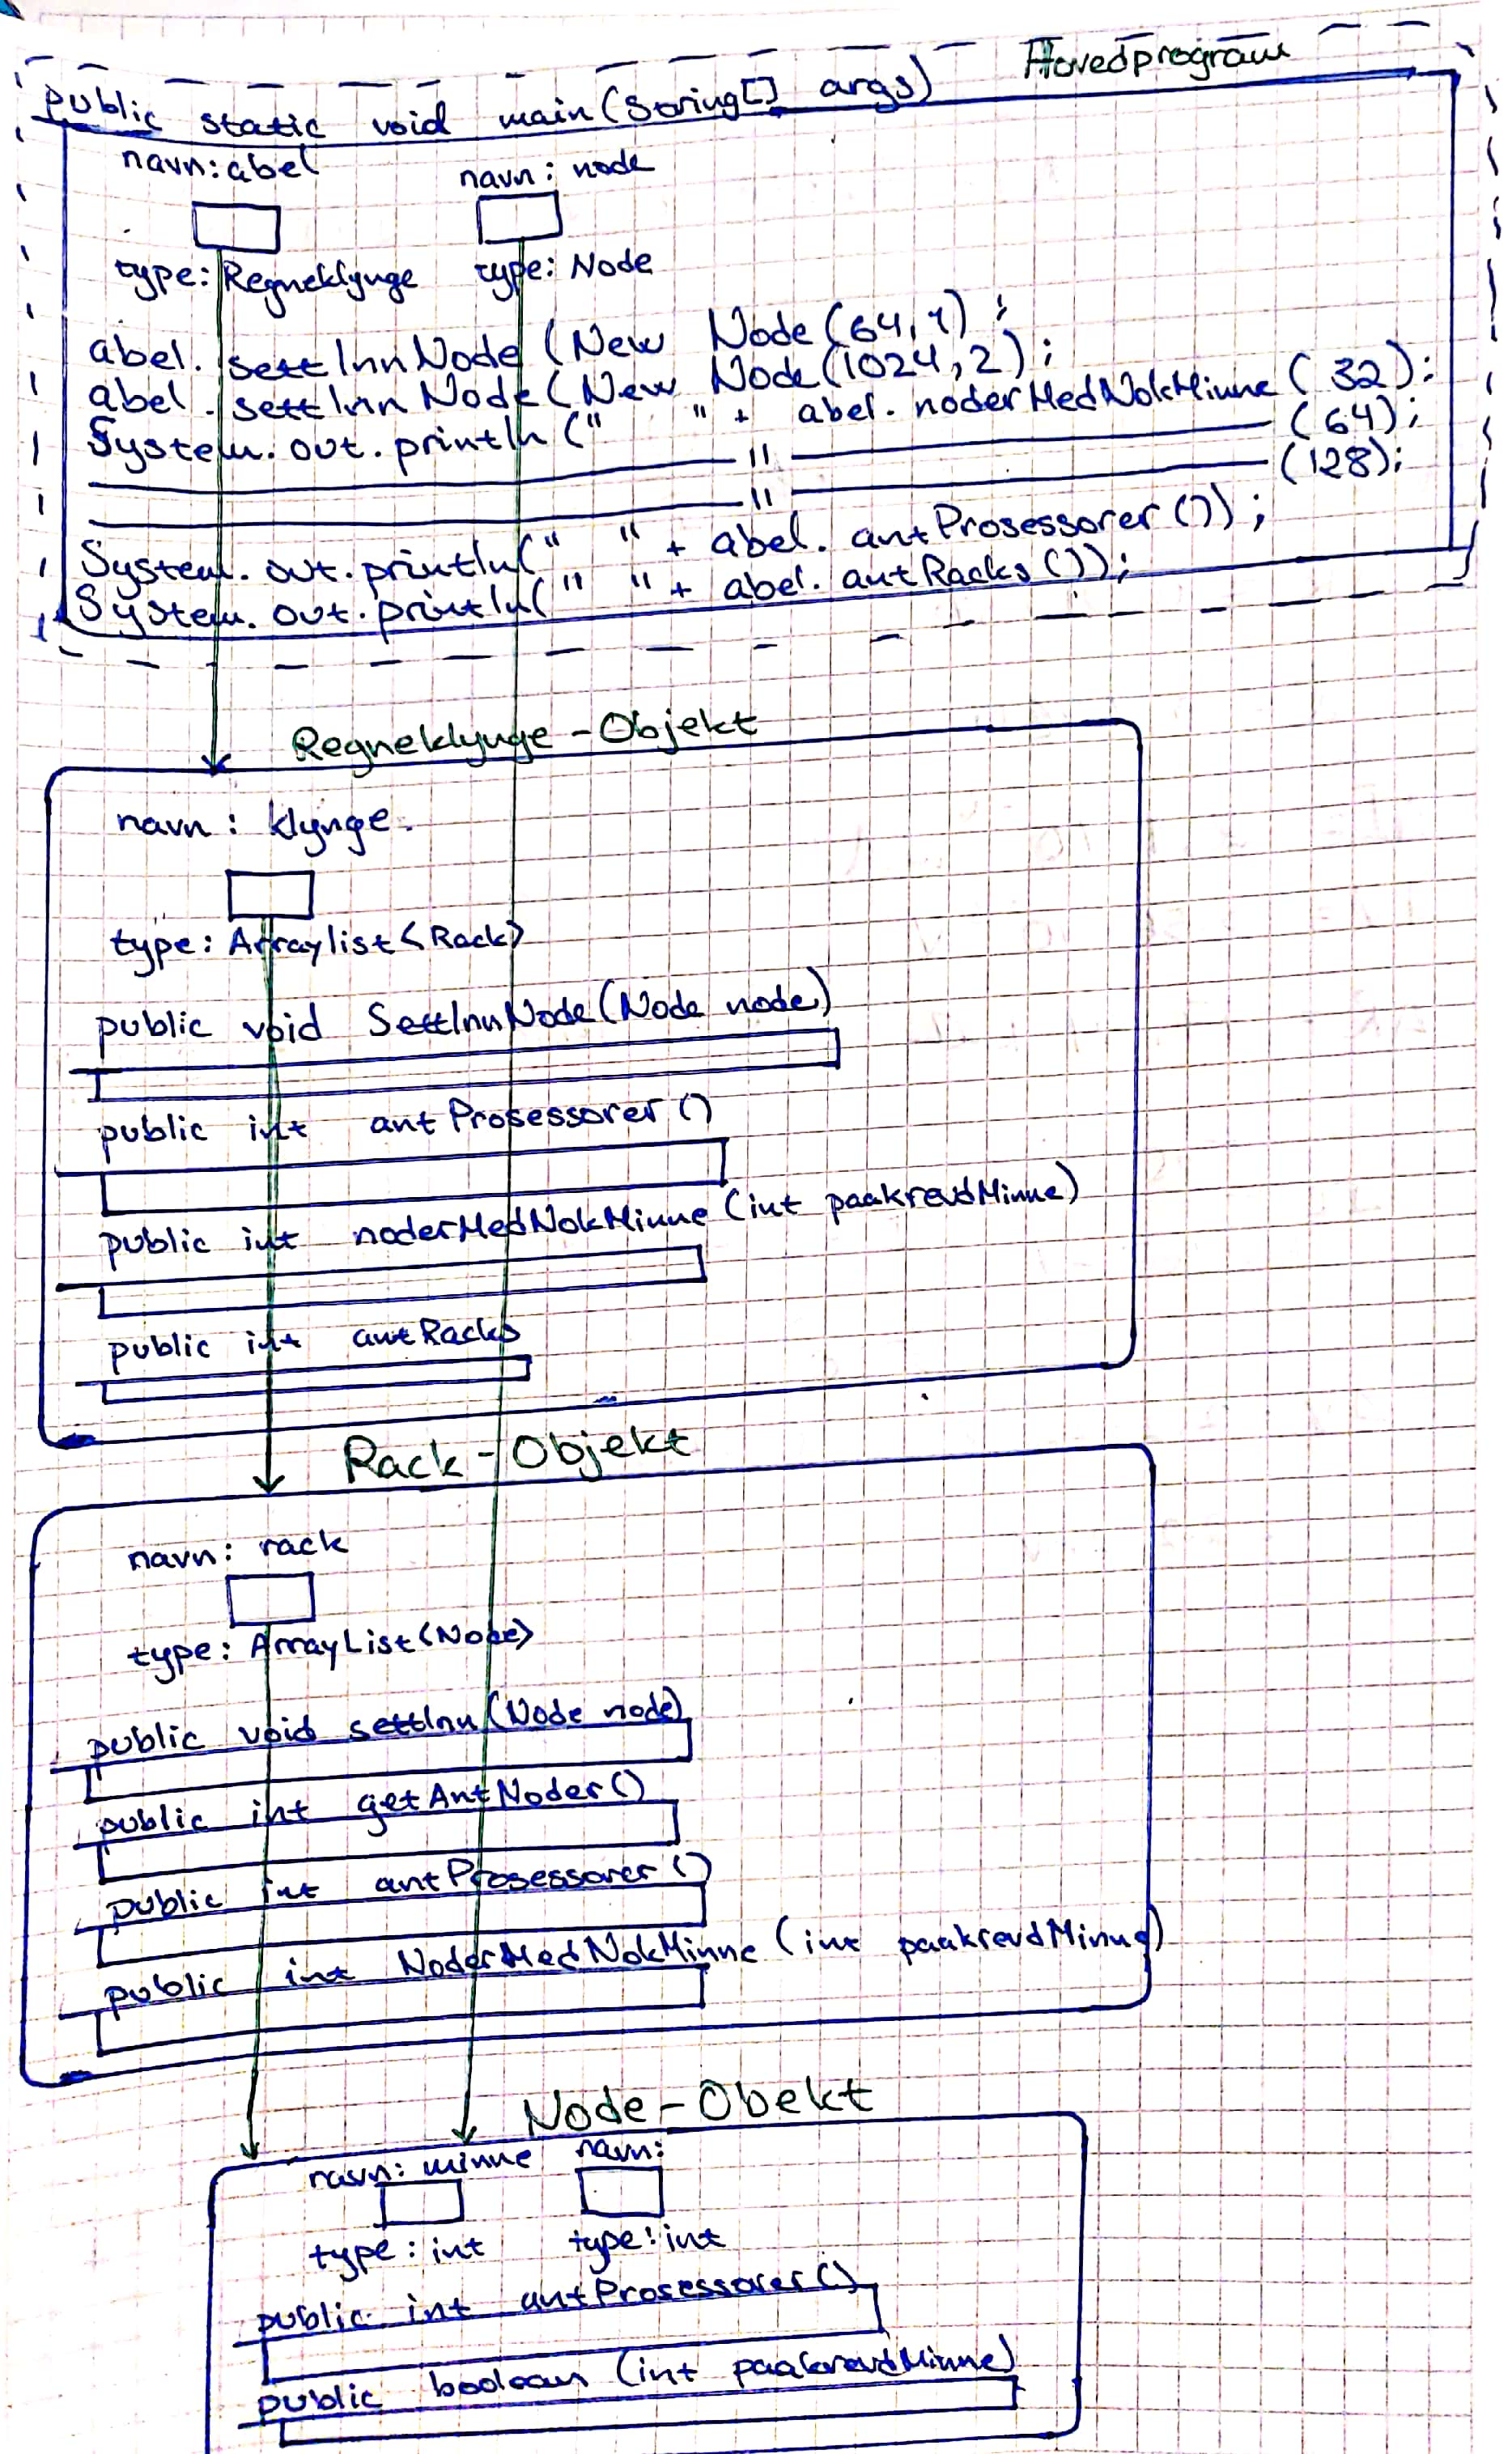 Hovedprogram
public static void main(String[] args)
navn: abel navn: node
type: Regneklynge type: Node
abel. settInnNode (New Node(64,1);
abel. settInnNode(New Node(1024,2);
System.out.println(" " + abel. noderMedNokMinne (32);
———— " ———— (64);
———— " ———— (128);
System.out.println(" " + abel. antProsessorer());
System.out.println(" " + abel. antRacks());
Regneklynge - Objekt
navn: klynge.
type: Arraylist<Rack>
public void SettInnNode(Node node)
public int antProsessorer()
public int noderMedNokMinne (int paakrevdMinne)
public int antRacks
Rack - Objekt
navn: rack
type: ArrayList<Node>
public void settInn(Node node)
public int getAntNoder()
public int antProsessorer()
public int NoderMedNokMinne (int paakrevdMinne)
Node - Obekt
navn: minne navn:
type: int type: int
public int antProsessorer()
public boolean (int paakrevdMinne)